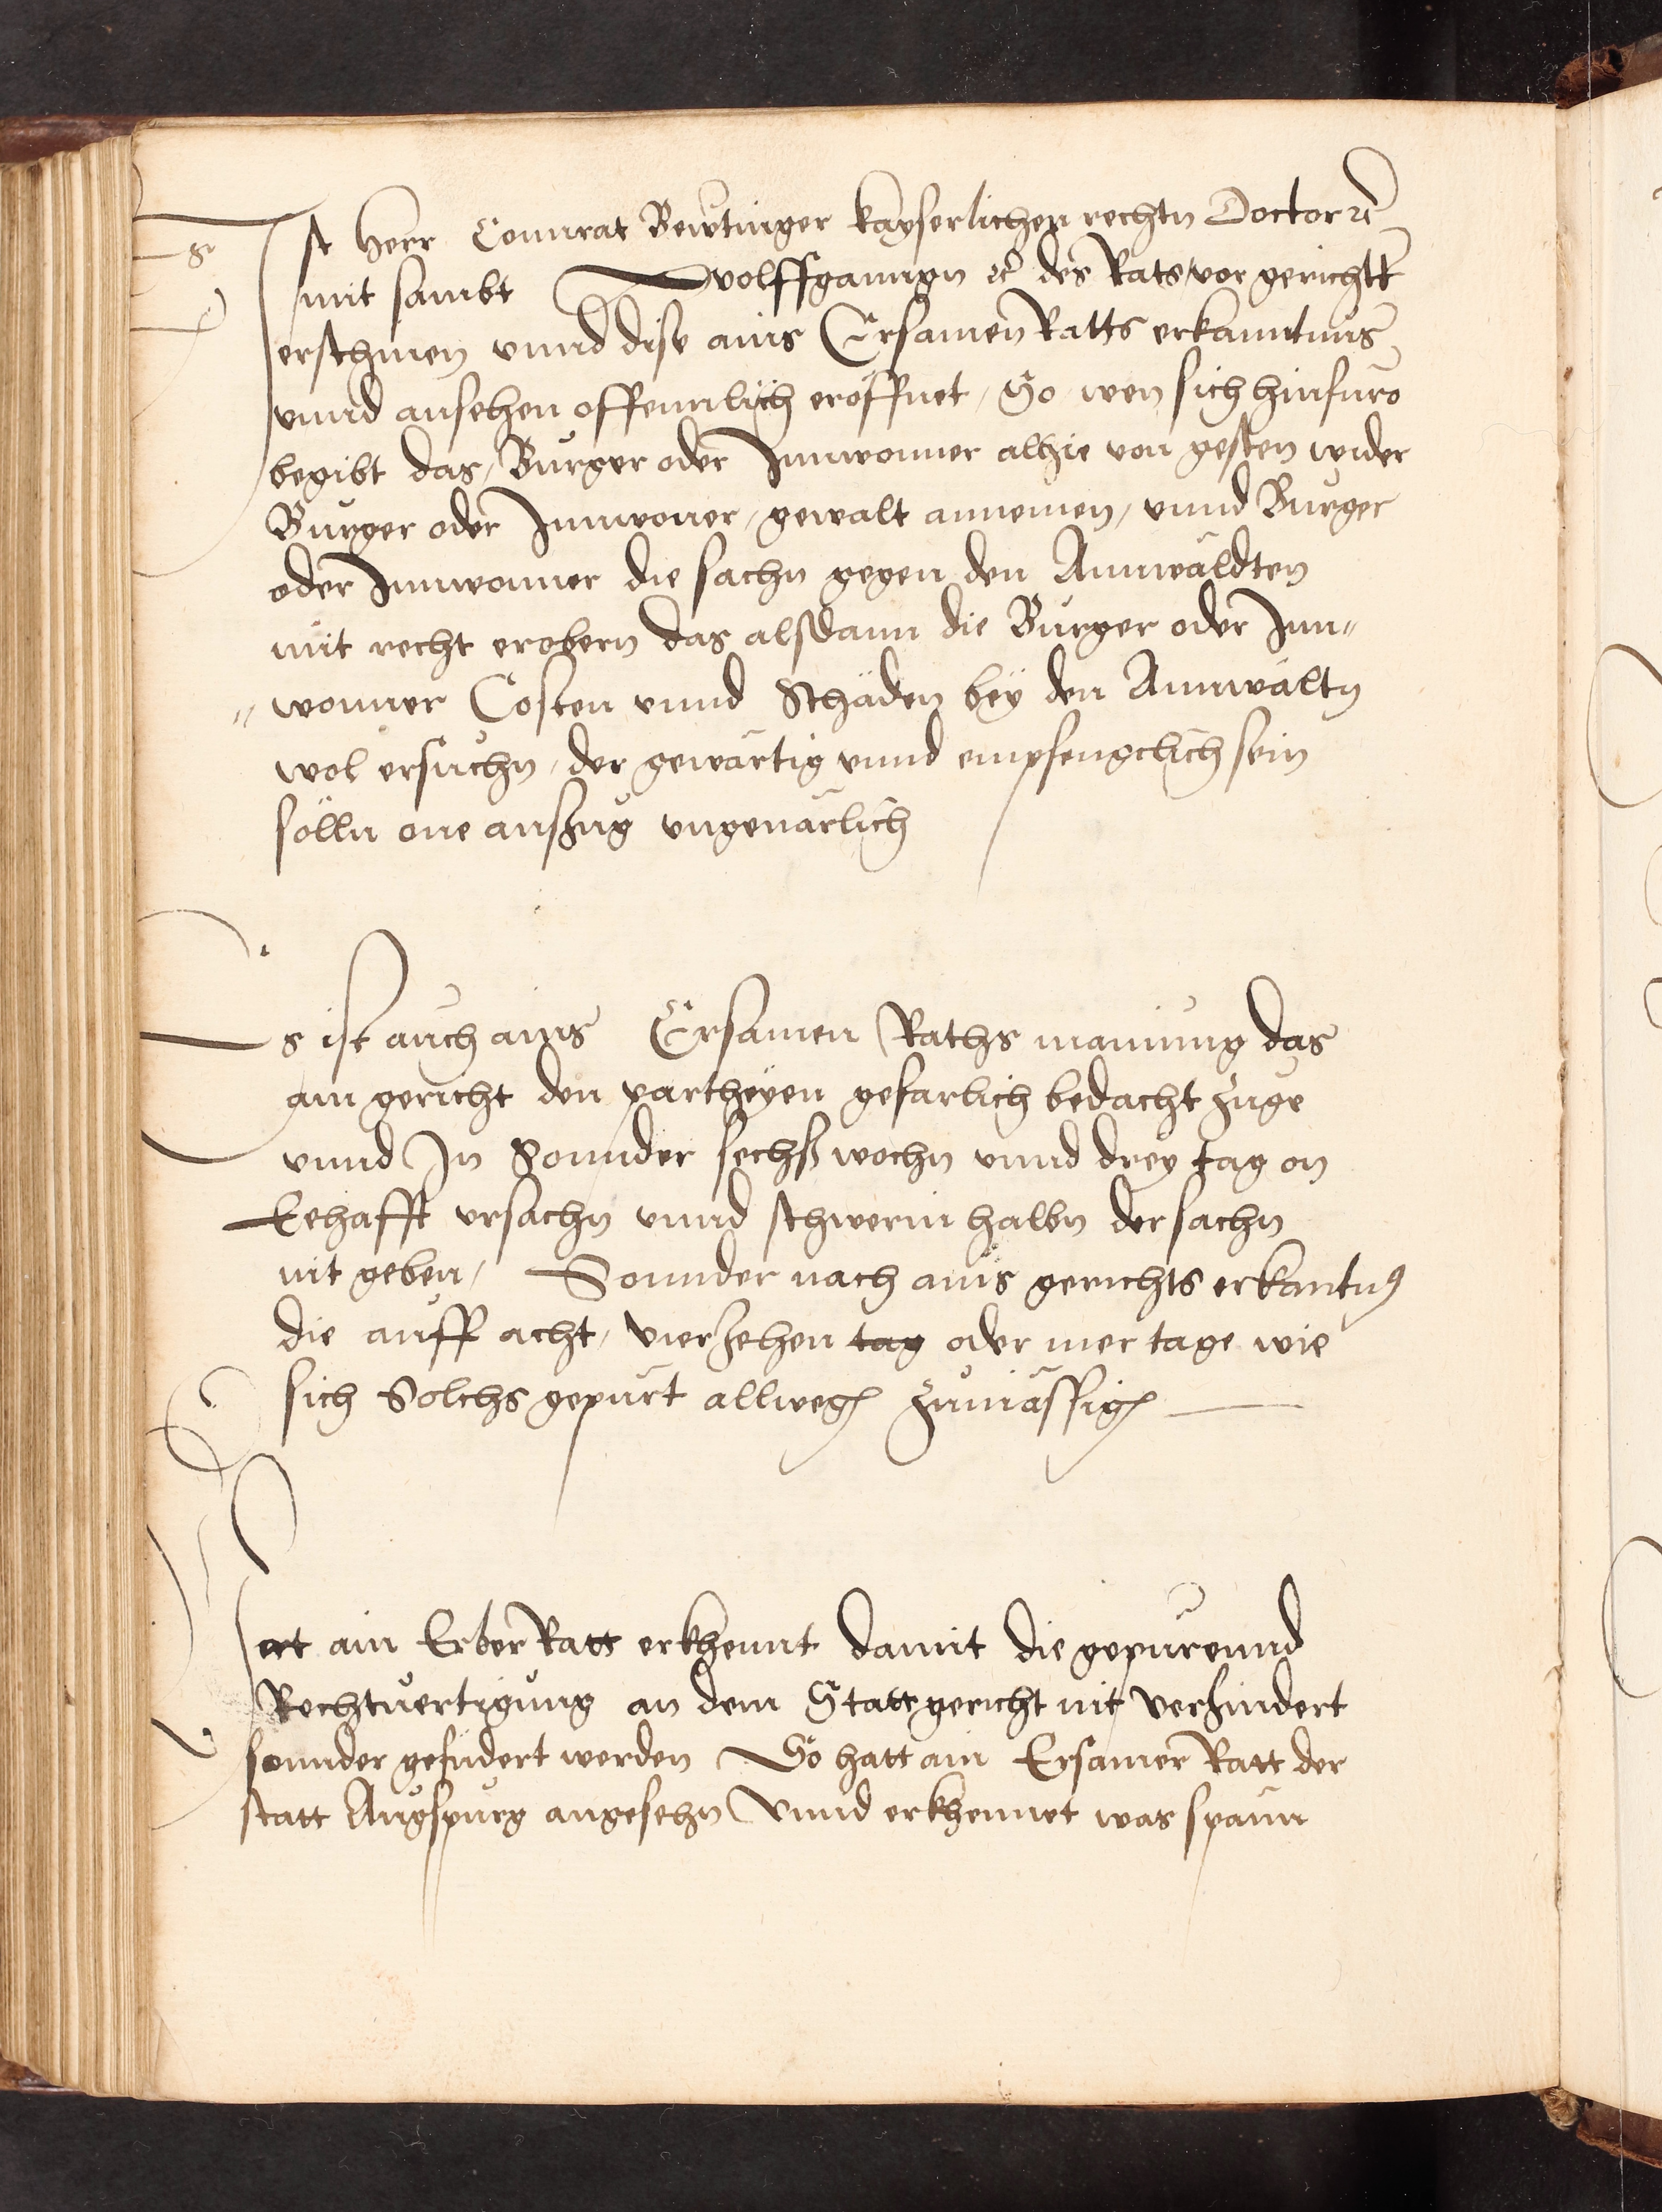 Ist Herr Connrat Bewtinger kayserlichen rechtn Doctor ꝛc
mit sambt Wolffganngn ꝛc des Rats vor gerichtt
erschinen vnnd dise ains Ersamen Ratts erkanntnus
vnnd ansehen offennlich eröffnet, So wen sich hinfuro
begibt das, Burger oder Innwonner alhie von gesten wider
Burger oder Innwoner, gewalt annemen, vnnd Burger
oder Innwonner die sachn gegen den Annwäldten
mit recht erobern das alsdann die Burger oder Inn"
"wonner Costen vnnd Schäden bey den Annwältn
wol ersuchn, der gewärtig vnnd empfengclich sein
sölln one auszug vngeuärlich
Es ist auch ains Ersamen Raths mainung das
ain gericht den partheyen gefarlich bedacht zuge
vnnd In Sonnder sechß wochn vnnd drey tag on
Eehafft vrsachn vnnd schwerin halbn der sachn
nit geben, Sonnder nach ains gerichts erkantnus
die auff acht, vierzehen tag oder mer tage wie
sich Solchs gepürt allwegen zumässigen
Hat ain Erber Ratt erkhennt damit die gepurennd
Rechtuertigung an dem Stattgericht nit verhindert
sonnder gefudert werden So hatt ain Ersamer Ratt der
statt Augspurg angesehn Vnnd erkhennet was spänn